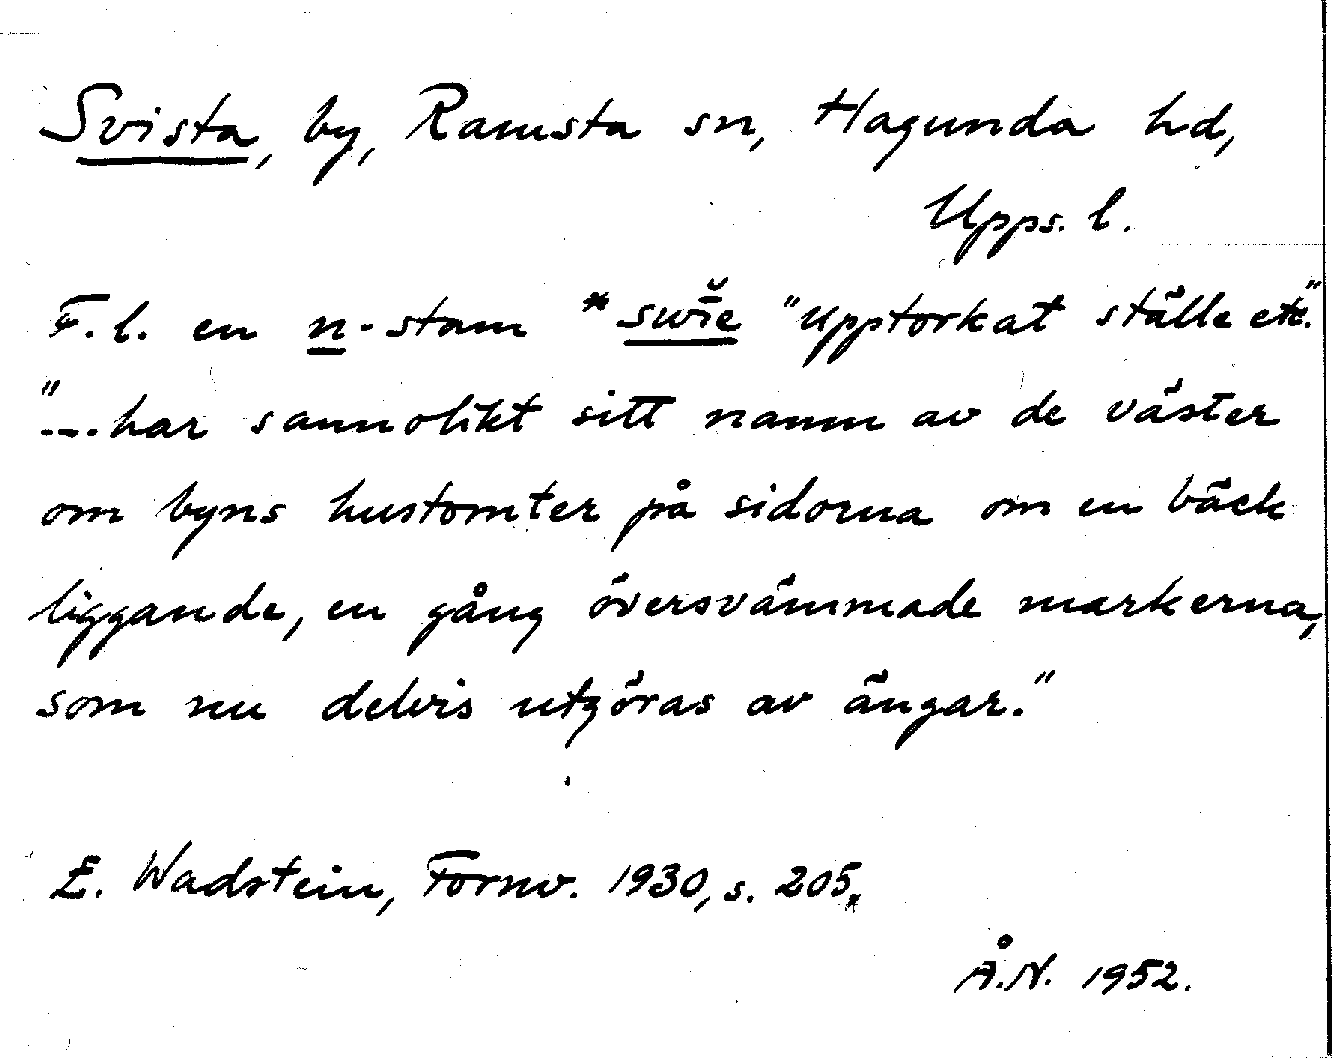 Svista, by, Ramsta sn, Hagunda hd,
Upps. l.
F. l. en n-stam *swı̄̆e "upptorkat ställe etc."
"--- har sannolikt sitt namn av de väster
om byns hustomter på sidorna om en bäck
liggande, en gång översvämmade markerna,
som nu delvis utgöras av ängar."
E. Wadstein, Fornv. 1930, s. 205.
Å.N. 1952.